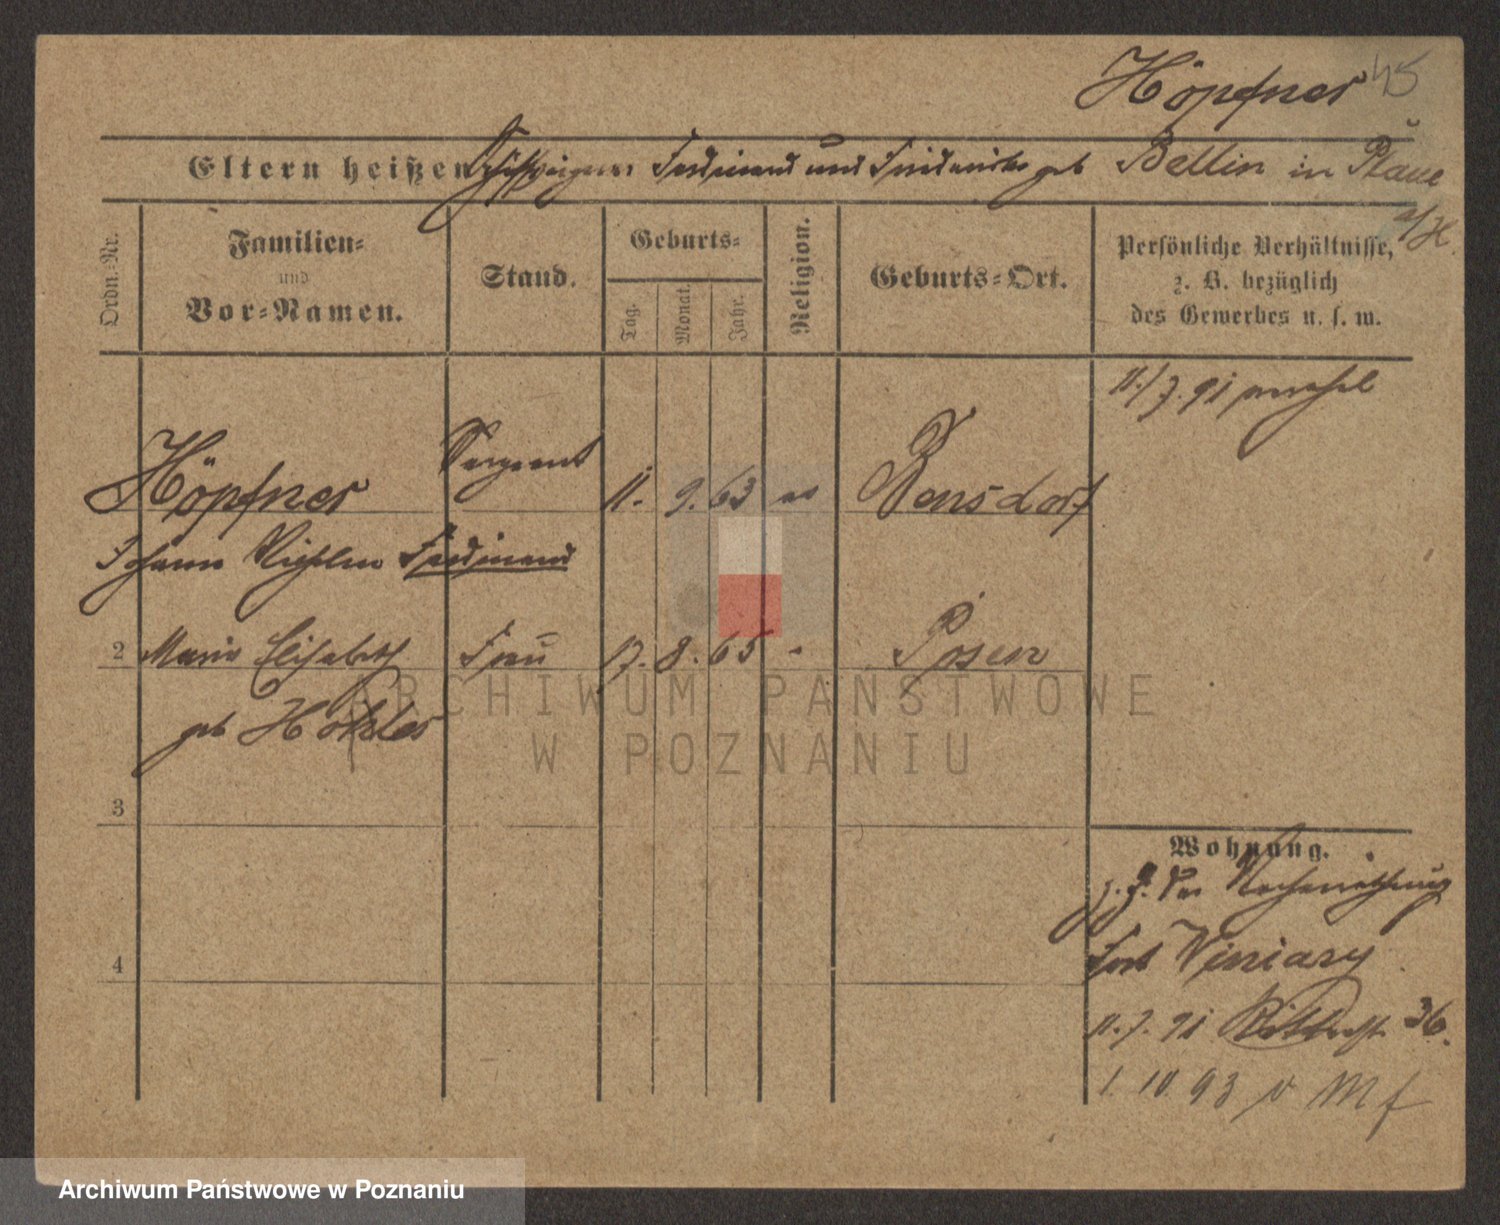 Höpfner 45
Eltern heißen Schiffseigner Ferdinand und Friederike geb Bellin in Plaue
a/H.
Ordn.-Nr.
Familien-
und
Vor-Namen.
Stand.
Geburts-
Tag.
Monat.
Jahr.
Religion.
Geburts-Ort.
Persönliche Verhältnisse,
z. B. bezüglich
des Gewerbes u. s. w.
11./7. 91
Höpfner Sergeant 11. 9. 63 ev Bensdorf
Johann Wilhelm Ferdinand
2 Marie Elisabeth Frau 17. 8. 65 Posen
geb
ARCHIWUM PAŃSTWOWE
W POZNANIU
3
Wohnung.
Fort Winiary
4
11. 7. 91 36.
1. 10. 93
Archiwum Państwowe w Poznaniu